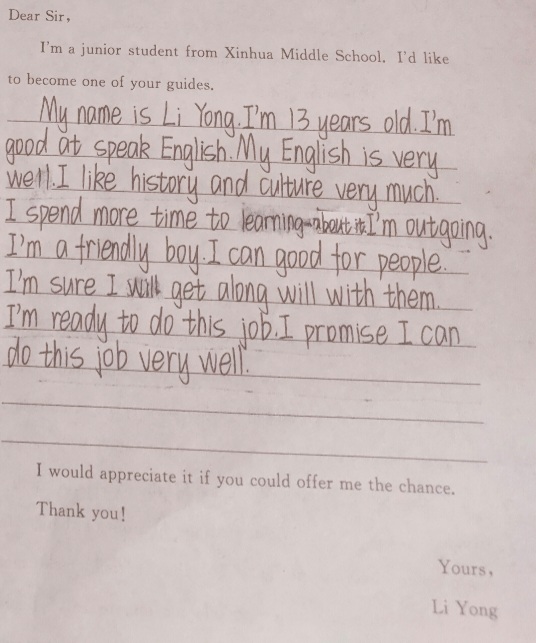 Dear Sir,
I'm a junior student from Xinhua Middle School. I'd like
to become one of your guides.
My name is Li Yong. I'm 13 years old. I'm
good at speak English. My English is very
well. I like history and culture very much.
I spend more time to learning about it. I'm outgoing.
I'm a friendly boy. I can good for people.
I'm sure I will get along will with them.
I'm ready to do this job. I promise I can
do this job very well.
I would appreciate it if you could offer me the chance.
Thank you!
Yours,
Li Yong